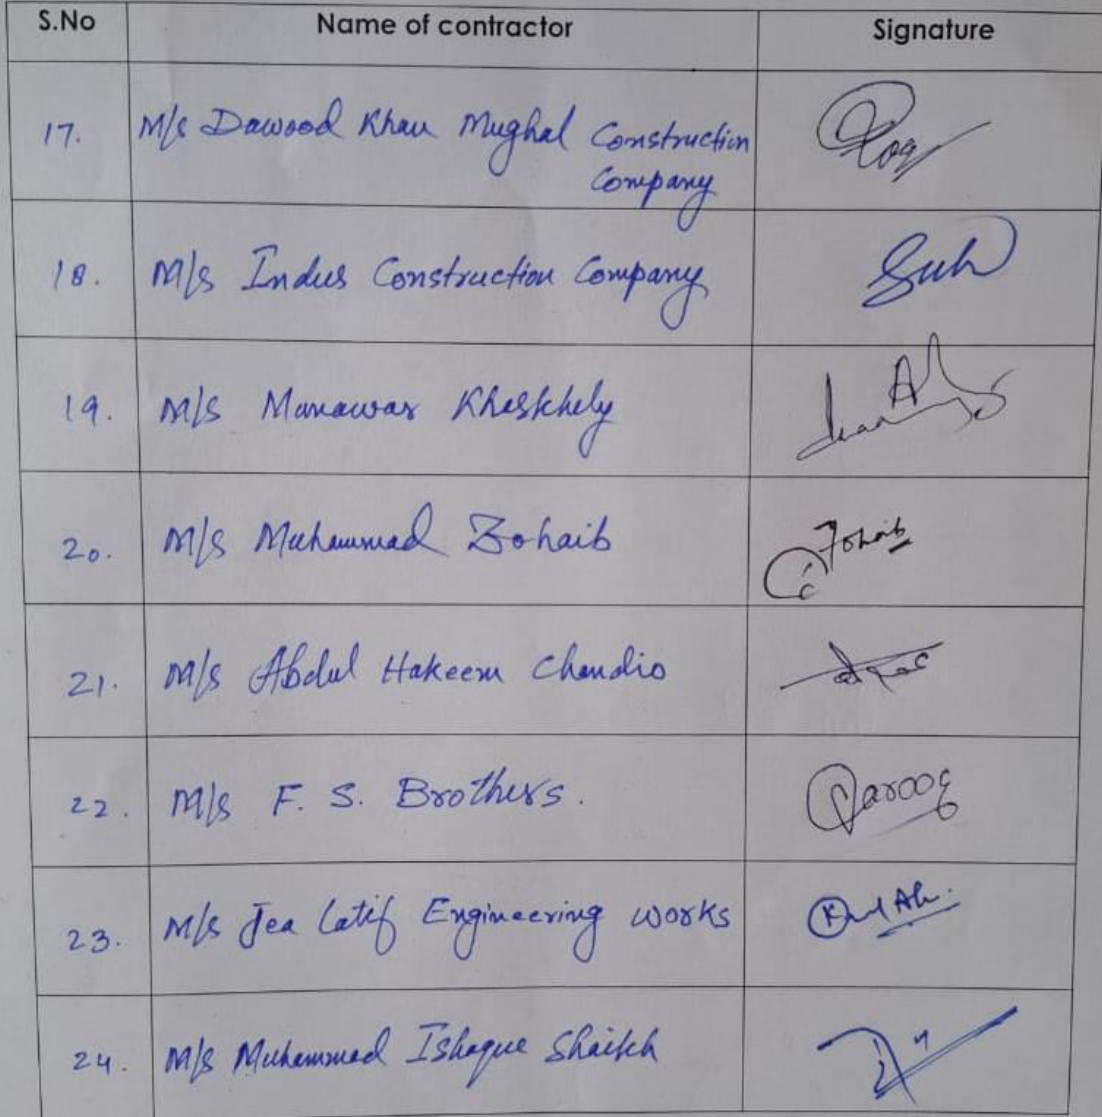 S.No Name of contractor Signature
17. M/s Dawood Khan Mughal Construction
Company
18. M/s Indus Construction Company
19. M/s Manawar Khaskhely
20. M/s Muhammad Zohaib Zohaib
21. M/s Abdul Hakeem Chandio
22. M/s F. S. Brothers. Farooq
23. M/s Jea Latif Engineering works
24. M/s Muhammad Ishaque Shaikh